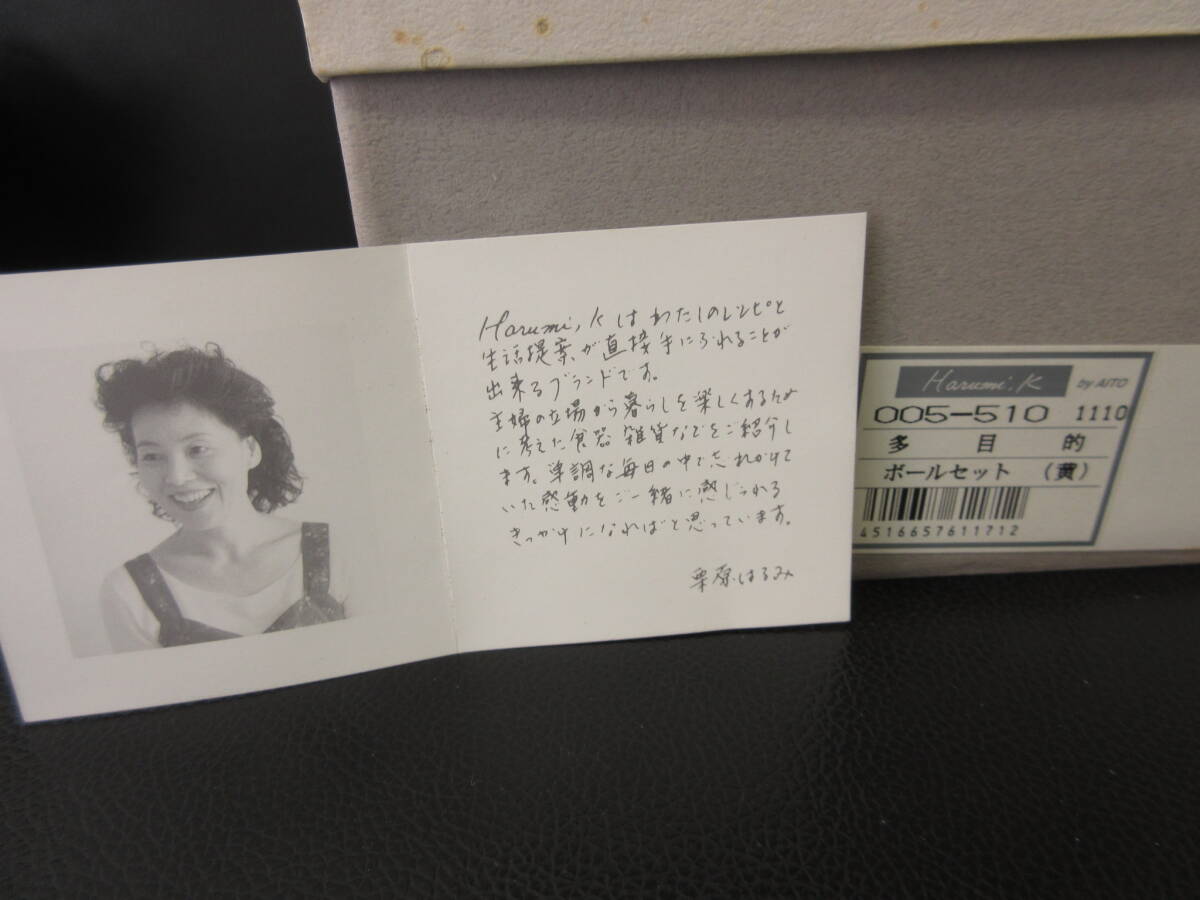 Harumi, K は わたしのレシピと
生活提案が直接手にふれることが
出来るブランドです。
主婦の立場から暮らしを楽しくするため
に考えた食器 雑貨などをご紹介し
ます。単調な毎日の中で忘れかけて
いた感動をご一緒に感じられる
きっかけになればと思っています。
栗原はるみ
Harumi. K by AITO
005-510 1110
多目的
ボールセット (黄)
4516657611712